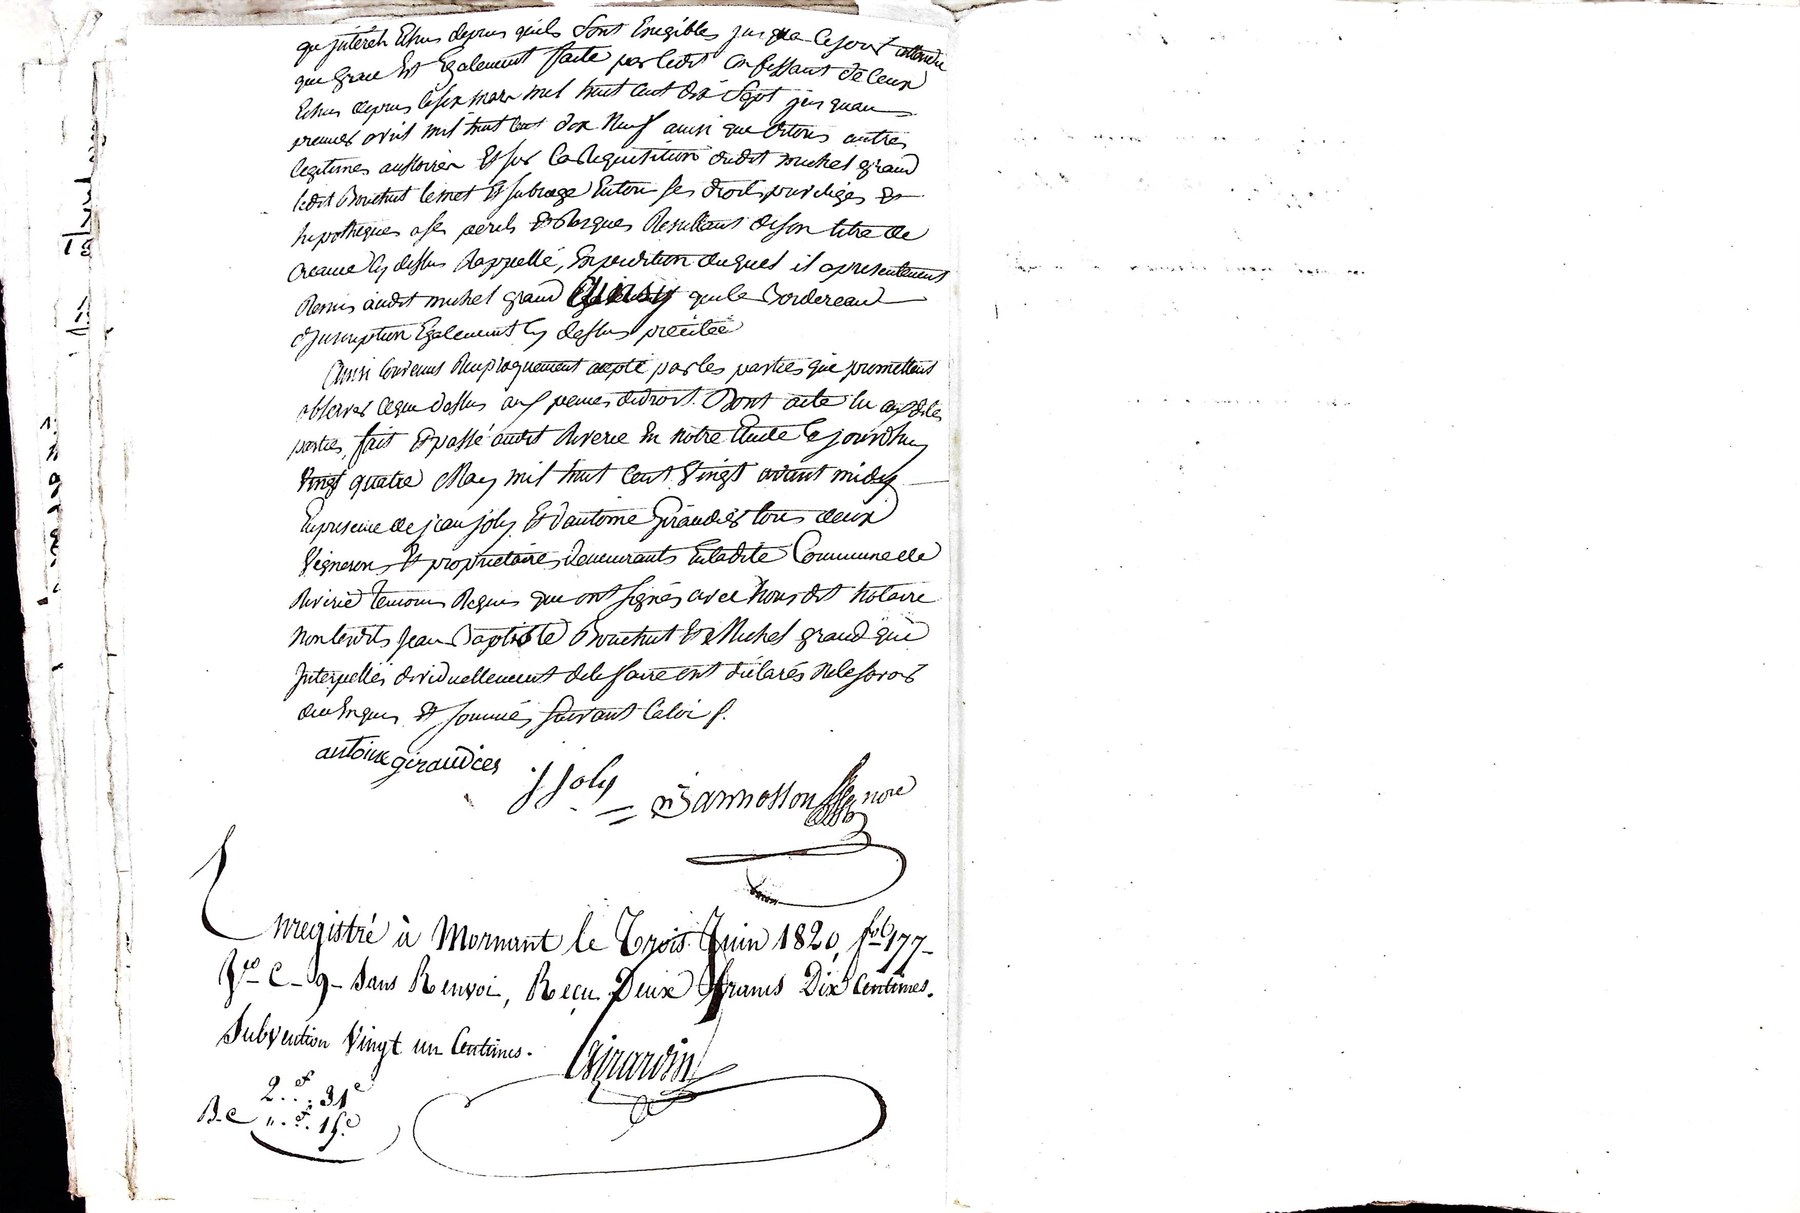 qu'intérêts Echus depuis quils Sont Exigibles jusqua Cejour attendu
que grace Est Egalement faite par ledit Confessant de Ceux
Echus depuis lesix mars mil huit cent dix Sept jusquau
premier avril mil huit cent dix Neuf ainsi que detous autres
legitimes accessoires Et sur la Requisition dudit michel grand
ledit Bouchut lemet Et subroge Entous ses droits privileges Et
hypotheques ases perils Et Risques Resultants deson titre de
Creance Cy dessus Rappellé, Expedition duquel il apresentement
Remis audit michel grand ainsy quele Bordereau
d'Inscription Egalement Cy dessus précitée
Ainsi Convenus Reciproquement accepté parles parties qui promettent
observer Ceque dessus aux peines dedroit. Dont acte lu auxdites
parties, fait Et passé audit Riverie En notre Etude Cejourdhuy
Vingt quatre May mil huit Cent Vingt avant midy
Enpresence de jean joly Et d'antoine Giraudier tous deux
Vigneron Et proprietaires demeurants Enladite Commune de
Riverie temoins Requis qui ont signés avec Nousdit Notaire
Non lesdits Jean Baptiste Bouchut Et Michel grand qui
Interpellés dividuellement dele faire ont déclarés Nelesavoir
deu Enquis Et sommés suivant laloi
antoine giraudier
J Joly
Jannosson nore
Enregistré à Mornant le Trois Juin 1820, fol 177
Vo C 9 Sans Renvoi, Reçu Deux francs Dix Centimes.
Subvention Vingt un Centimes.
Girardin
2.f. 31c
B.C ".f. 15c